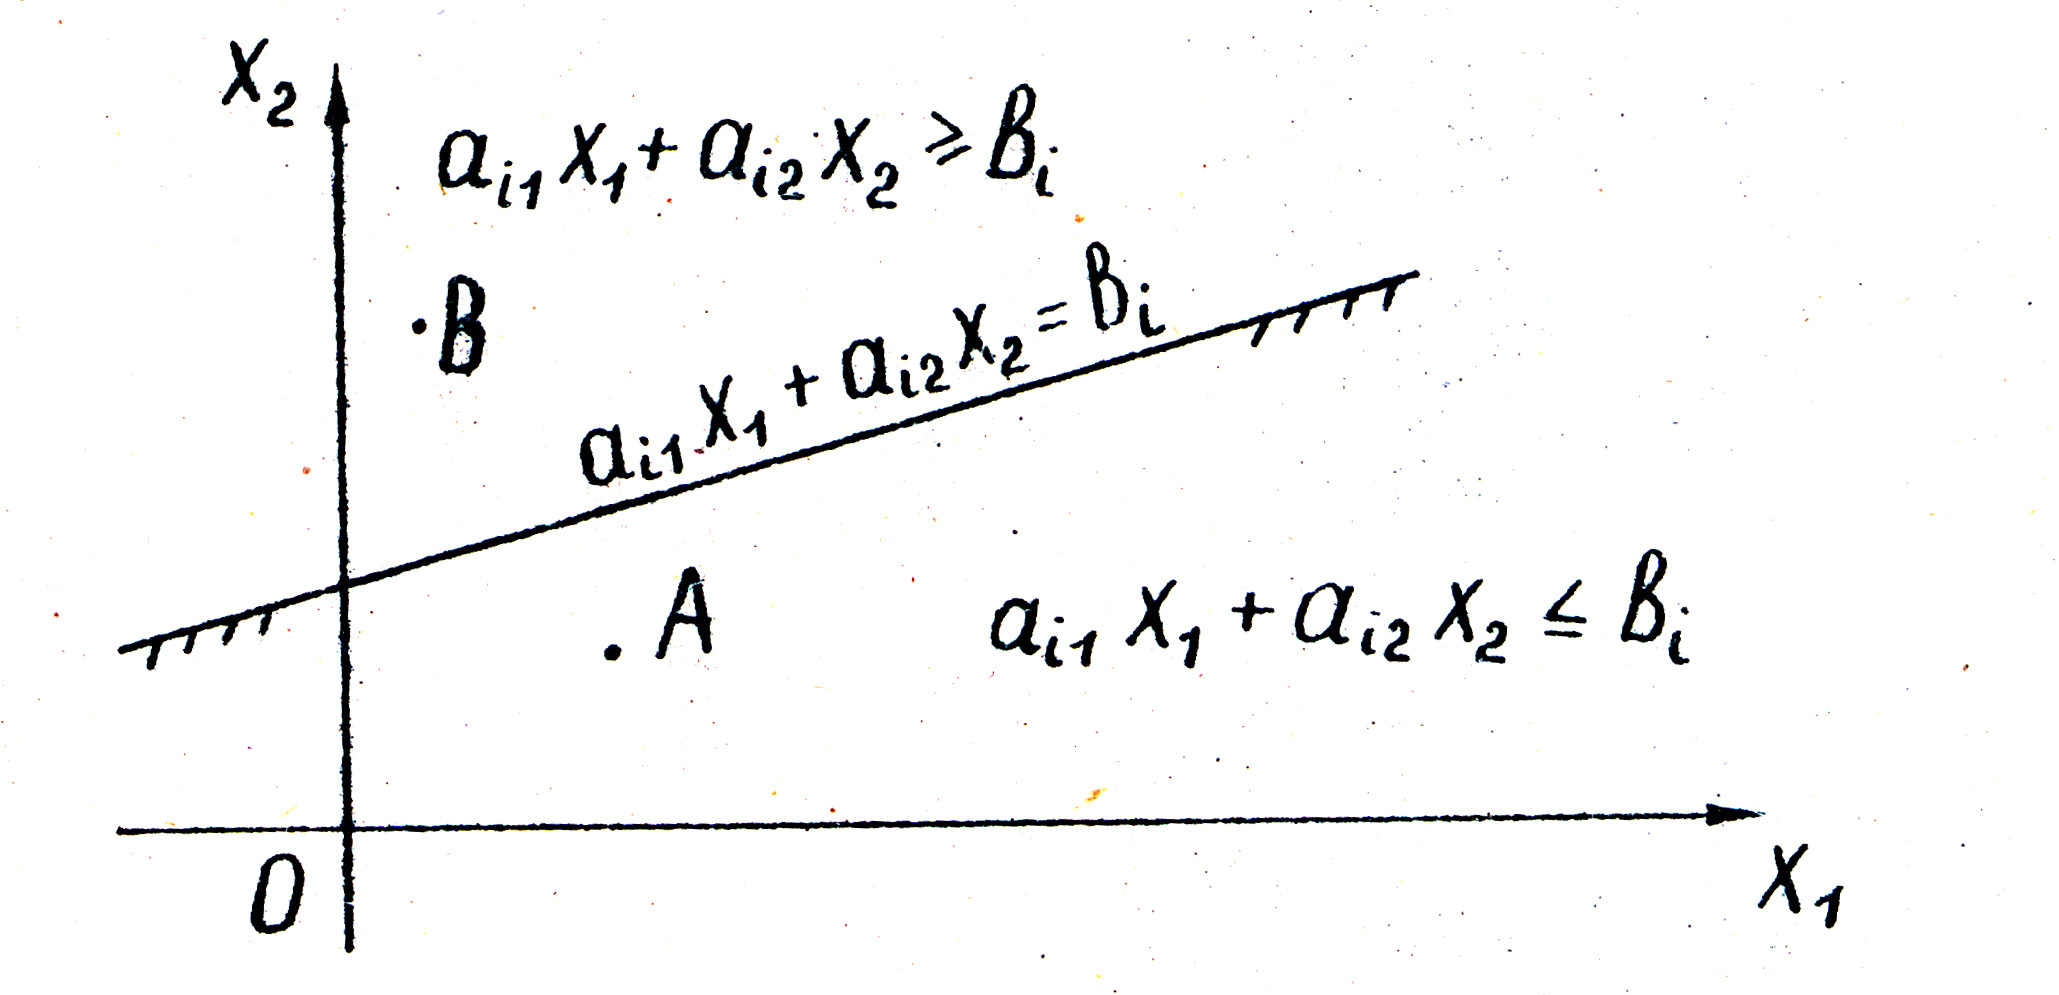 x₂
aᵢ₁x₁ + aᵢ₂x₂ ≥ Bᵢ
B
aᵢ₁x₁ + aᵢ₂x₂ = Bᵢ
A
aᵢ₁x₁ + aᵢ₂x₂ ≤ Bᵢ
0
x₁